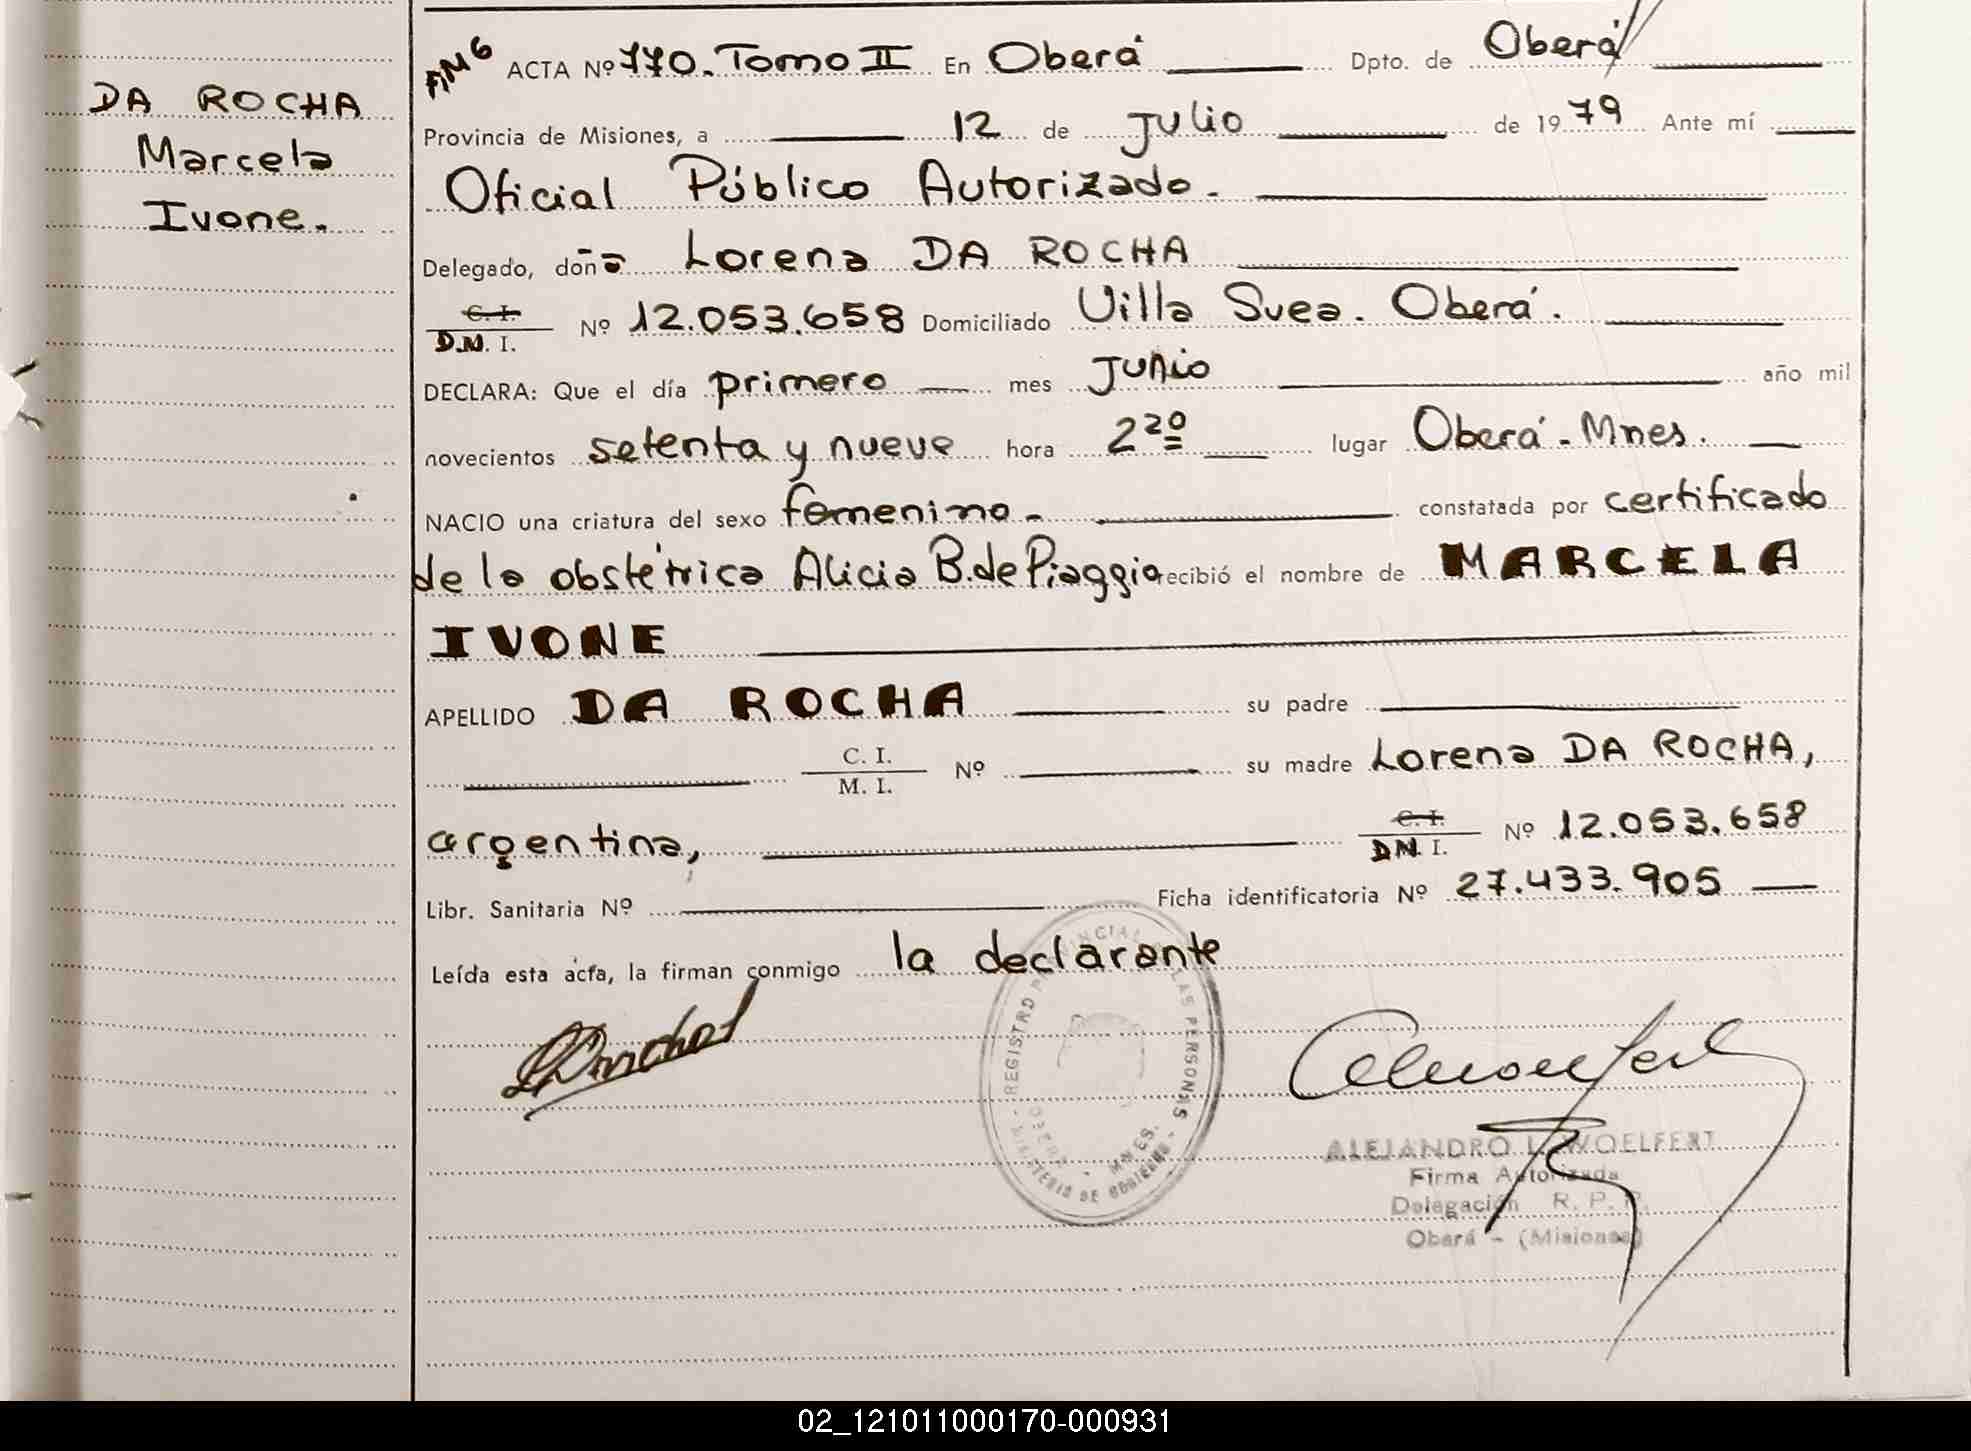 DA ROCHA
Marcela
Ivone.
ACTA Nº 770. Tomo II En Oberá Dpto. de Oberá
Provincia de Misiones, a 12 de Julio de 1979 Ante mí
Oficial Público Autorizado.
Delegado, doña Lorena DA ROCHA
C. I. / D.N. I. Nº 12.053.658 Domiciliado Villa Svea. Oberá.
DECLARA: Que el día primero mes Junio año mil
novecientos setenta y nueve hora 2²⁰ lugar Oberá - Mnes.
NACIO una criatura del sexo femenino - constatada por certificado
de la obstétrica Alicia B. de Piaggio recibió el nombre de MARCELA
IVONE
APELLIDO DA ROCHA su padre
C. I. / M. I. Nº su madre Lorena DA ROCHA,
argentina, C. I. / D.N. I. Nº 12.053.658
Libr. Sanitaria Nº Ficha identificatoria Nº 27.433.905
Leída esta acta, la firman conmigo la declarante
REGISTRO PROVINCIAL DE LAS PERSONAS
MINISTERIO DE GOBIERNO
MNES.
ALEJANDRO L. WOELFERT
Firma Autorizada
Delegación R. P. P.
Oberá - (Misiones)
02_121011000170-000931